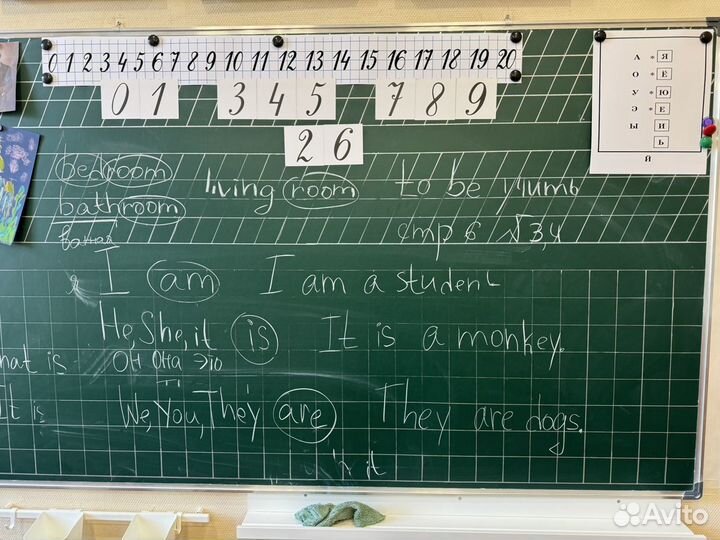 0 1 2 3 4 5 6 7 8 9 10 11 12 13 14 15 16 17 18 19 20
0 1 3 4 5 7 8 9
2 6
А * Я
О * Ё
У * Ю
Э * Е
Ы И
Ь
Й
bedroom living room to be учить
bathroom стр 6 №3,4
ванная
я I am I am a student
He, She, it is It is a monkey.
hat is он она это
It is We, You, They are They are dogs.
it
Avito